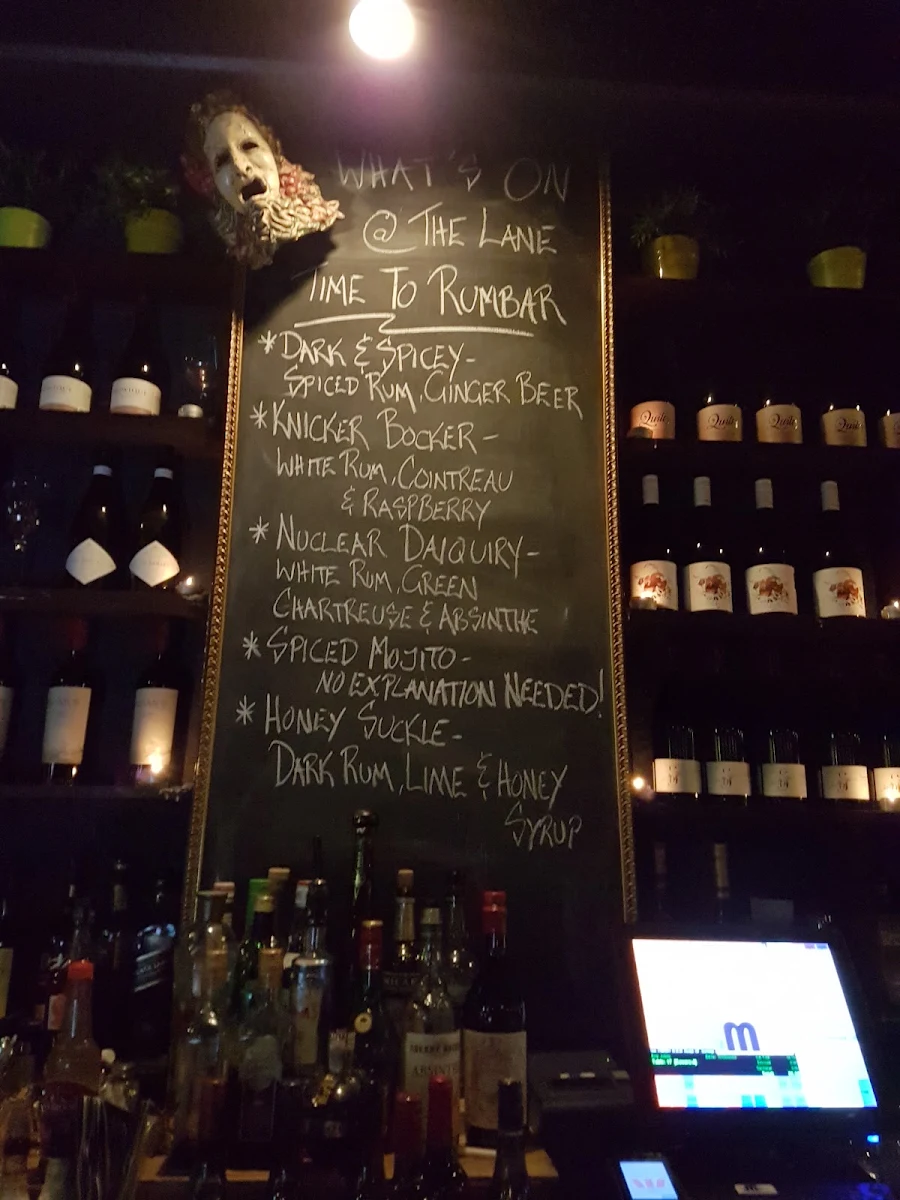 WHAT'S ON
@ THE LANE
TIME TO RUMBAR
* DARK & SPICEY-
SPICED RUM, GINGER BEER
* KNICKER BOCKER -
WHITE RUM, COINTREAU
& RASPBERRY
* NUCLEAR DAIQUIRY-
WHITE RUM, GREEN
CHARTREUSE & ABSINTHE
* SPICED MOJITO -
NO EXPLANATION NEEDED!
* HONEY SUCKLE -
DARK RUM, LIME & HONEY
SYRUP
m